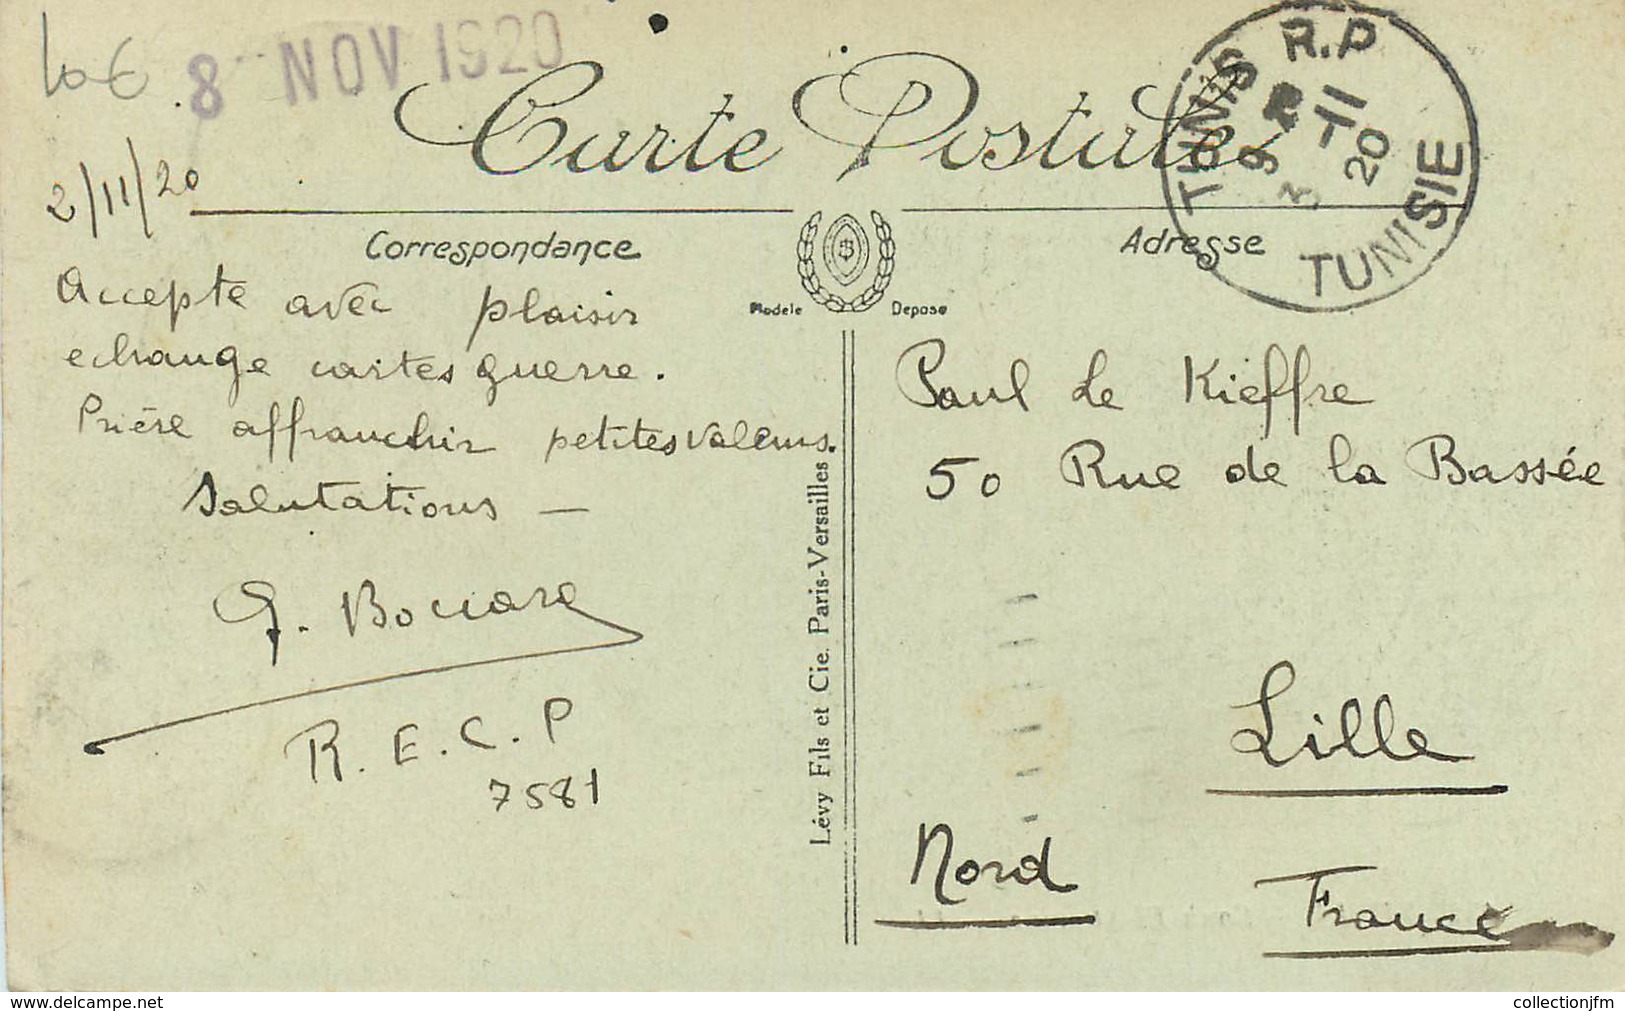 10€
8 NOV 1920
Carte Postale
TUNIS R.P
2-11
20
TUNISIE
2/11/20
Correspondance
Adresse
Modèle Déposé
Accepte avec plaisir
echange cartes guerre.
Prière affranchir petites valeurs.
Salutations —
R.E.C.P
7581
Lévy Fils et Cie. Paris-Versailles
Paul Le Kieffre
50 Rue de la Bassée
Lille
Nord
France
www.delcampe.net
collectionjfm